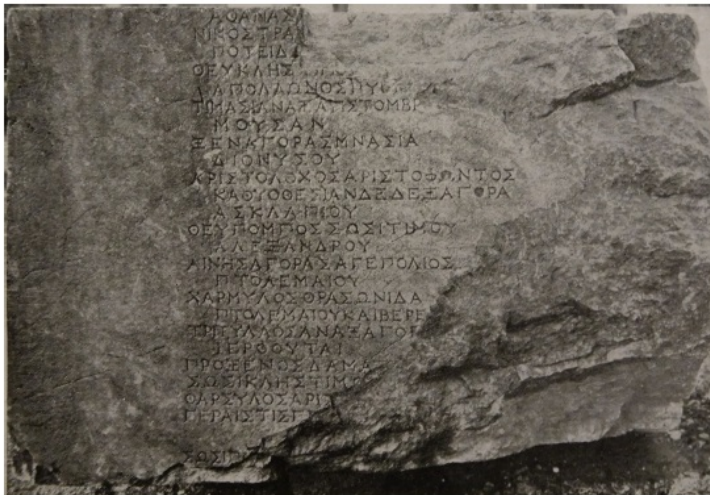 ΑΘΑΝΑΣ
ΝΙΚΟΣΤΡΑ
ΠΟΤΕΙΔ
ΘΕΥΚΛΗΣ
ΤΙΜΑΣΙΑΝΑΞΑΡΙΣΤΟΜΒΡ
ΜΟΥΣΑΝ
ΞΕΝΑΓΟΡΑΣΜΝΑΣΙΑ
ΔΙΟΝΥΣΟΥ
ΑΡΙΣΤΟΛΟΧΟΣΑΡΙΣΤΟΦΩΝΤΟΣ
ΚΑΘΥΟΘΕΣΙΑΝΔΕΔΕΞΑΓΟΡΑ
ΑΣΚΛΑΠΙΟΥ
ΘΕΥΠΟΜΠΟΣΣΩΣΙΤΙΜΟΥ
ΑΛΕΞΑΝΔΡΟΥ
ΑΙΝΗΣΑΓΟΡΑΣΑΓΕΠΟΛΙΟΣ
ΠΤΟΛΕΜΑΙΟΥ
ΧΑΡΜΥΛΟΣΘΡΑΣΩΝΙΔΑ
ΠΤΟΛΕΜΑΙΟΥΚΑΙΒΕΡΕ
ΤΙΜΥΛΛΟΣΑΝΑΞΑΓΟΡ
ΙΕΡΟΘΥΤΑΙ
ΠΡΟΞΕΝΟΣΔΑΜΑ
ΣΩΣΙΚΛΗΣΤΙΜ
ΘΑΡΣΥΛΟΣΑΡΙΣ
ΓΕΡΑΙΣΤΙΣ
ΣΩΣΙ